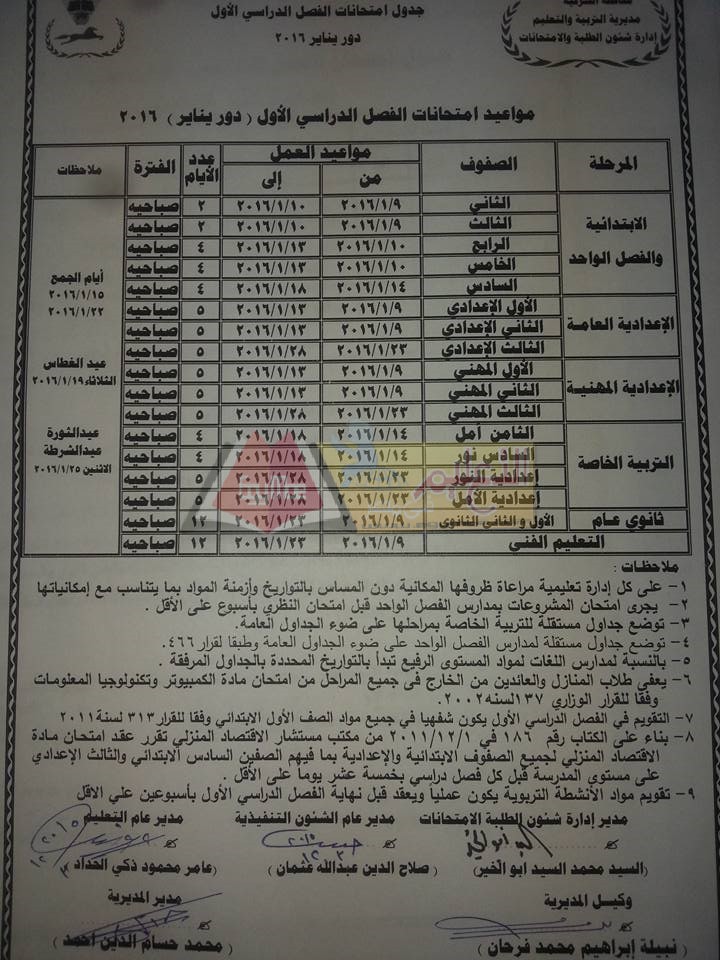 جدول امتحانات الفصل الدراسي الأول
دور يناير ٢٠١٦
مديرية التربية والتعليم
إدارة شئون الطلبة والامتحانات
مواعيد امتحانات الفصل الدراسي الأول ( دور يناير ) ٢٠١٦
المرحلة الصفوف مواعيد العمل عدد الأيام الفترة ملاحظات
من إلى
الابتدائية والفصل الواحد
الثاني ٢٠١٦/١/٩ ٢٠١٦/١/١٠ ٢ صباحيه
الثالث ٢٠١٦/١/٩ ٢٠١٦/١/١٠ ٢ صباحيه
الرابع ٢٠١٦/١/١٠ ٢٠١٦/١/١٣ ٤ صباحيه
الخامس ٢٠١٦/١/١٠ ٢٠١٦/١/١٣ ٤ صباحيه
السادس ٢٠١٦/١/١٤ ٢٠١٦/١/١٨ ٤ صباحيه
الإعدادية العامة
الأول الإعدادي ٢٠١٦/١/٩ ٢٠١٦/١/١٣ ٥ صباحيه
الثاني الإعدادي ٢٠١٦/١/٩ ٢٠١٦/١/١٣ ٥ صباحيه
الثالث الإعدادي ٢٠١٦/١/٢٣ ٢٠١٦/١/٢٨ ٥ صباحيه
الإعدادية المهنية
الأول المهني ٢٠١٦/١/٩ ٢٠١٦/١/١٣ ٥ صباحيه
الثاني المهني ٢٠١٦/١/٩ ٢٠١٦/١/١٣ ٥ صباحيه
الثالث المهني ٢٠١٦/١/٢٣ ٢٠١٦/١/٢٨ ٥ صباحيه
التربية الخاصة
الثامن أمل ٢٠١٦/١/١٤ ٢٠١٦/١/١٨ ٤ صباحيه
السادس نور ٢٠١٦/١/١٤ ٢٠١٦/١/١٨ ٤ صباحيه
إعدادية النور ٢٠١٦/١/٢٣ ٢٠١٦/١/٢٨ ٥ صباحيه
إعدادية الأمل ٢٠١٦/١/٢٣ ٢٠١٦/١/٢٨ ٥ صباحيه
ثانوي عام الأول و الثاني الثانوي ٢٠١٦/١/٩ ٢٠١٦/١/٢٣ ١٢ صباحيه
التعليم الفني ٢٠١٦/١/٩ ٢٠١٦/١/٢٣ ١٢ صباحيه
أيام الجمع
٢٠١٦/١/١٥
٢٠١٦/١/٢٢
عيد الغطاس
الثلاثاء ٢٠١٦/١/١٩
عيد الثورة
عيد الشرطة
الاثنين ٢٠١٦/١/٢٥
ملاحظات :
١- على كل إدارة تعليمية مراعاة ظروفها المكانية دون المساس بالتواريخ وأزمنة المواد بما يتناسب مع إمكانياتها
٢- يجرى امتحان المشروعات بمدارس الفصل الواحد قبل امتحان النظري بأسبوع على الأقل .
٣- توضع جداول مستقلة للتربية الخاصة بمراحلها على ضوء الجداول العامة.
٤- توضع جداول مستقلة لمدارس الفصل الواحد على ضوء الجداول العامة وطبقا لقرار ٤٦٦.
٥- بالنسبة لمدارس اللغات لمواد المستوى الرفيع تبدأ بالتواريخ المحددة بالجداول المرفقة .
٦- يعفى طلاب المنازل والعائدين من الخارج فى جميع المراحل من امتحان مادة الكمبيوتر وتكنولوجيا المعلومات
وفقا للقرار الوزاري ١٣٧ لسنه ٢٠٠٢.
٧- التقويم في الفصل الدراسي الأول يكون شفهيا في جميع مواد الصف الأول الابتدائي وفقا للقرار ٣١٣ لسنة ٢٠١١
٨- بناء على الكتاب رقم ١٨٦ في ٢٠١١/١٢/١ من مكتب مستشار الاقتصاد المنزلي تقرر عقد امتحان مادة
الاقتصاد المنزلي لجميع الصفوف الابتدائية والإعدادية بما فيهم الصفين السادس الابتدائي والثالث الإعدادي
على مستوى المدرسة قبل كل فصل دراسي بخمسة عشر يوما على الأقل .
٩- تقويم مواد الأنشطة التربوية يكون عملياً ويعقد قبل نهاية الفصل الدراسي الأول بأسبوعين على الاقل
مدير إدارة شئون الطلبة الامتحانات مدير عام الشئون التنفيذية مدير عام التعليم
(السيد محمد السيد ابو الخير) ( صلاح الدين عبدالله عثمان ) (عامر محمود ذكي الحداد )
وكيل المديرية مدير المديرية
( نبيلة إبراهيم محمد فرحان ) ( محمد حسام الدين احمد )